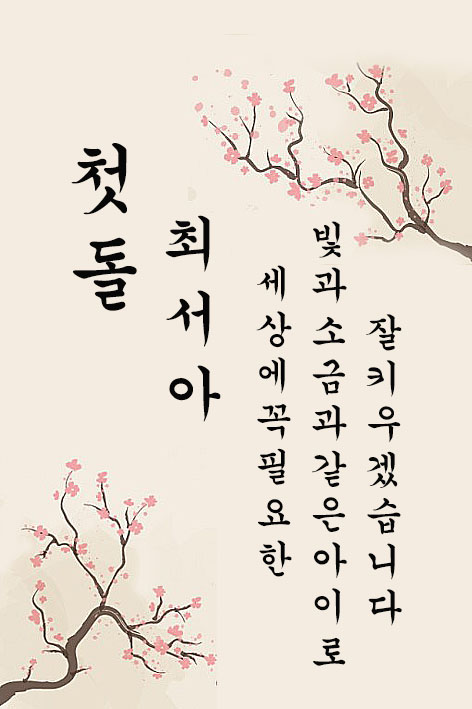 첫돌
최서아
세상에꼭필요한
빛과소금과같은아이로
잘키우겠습니다